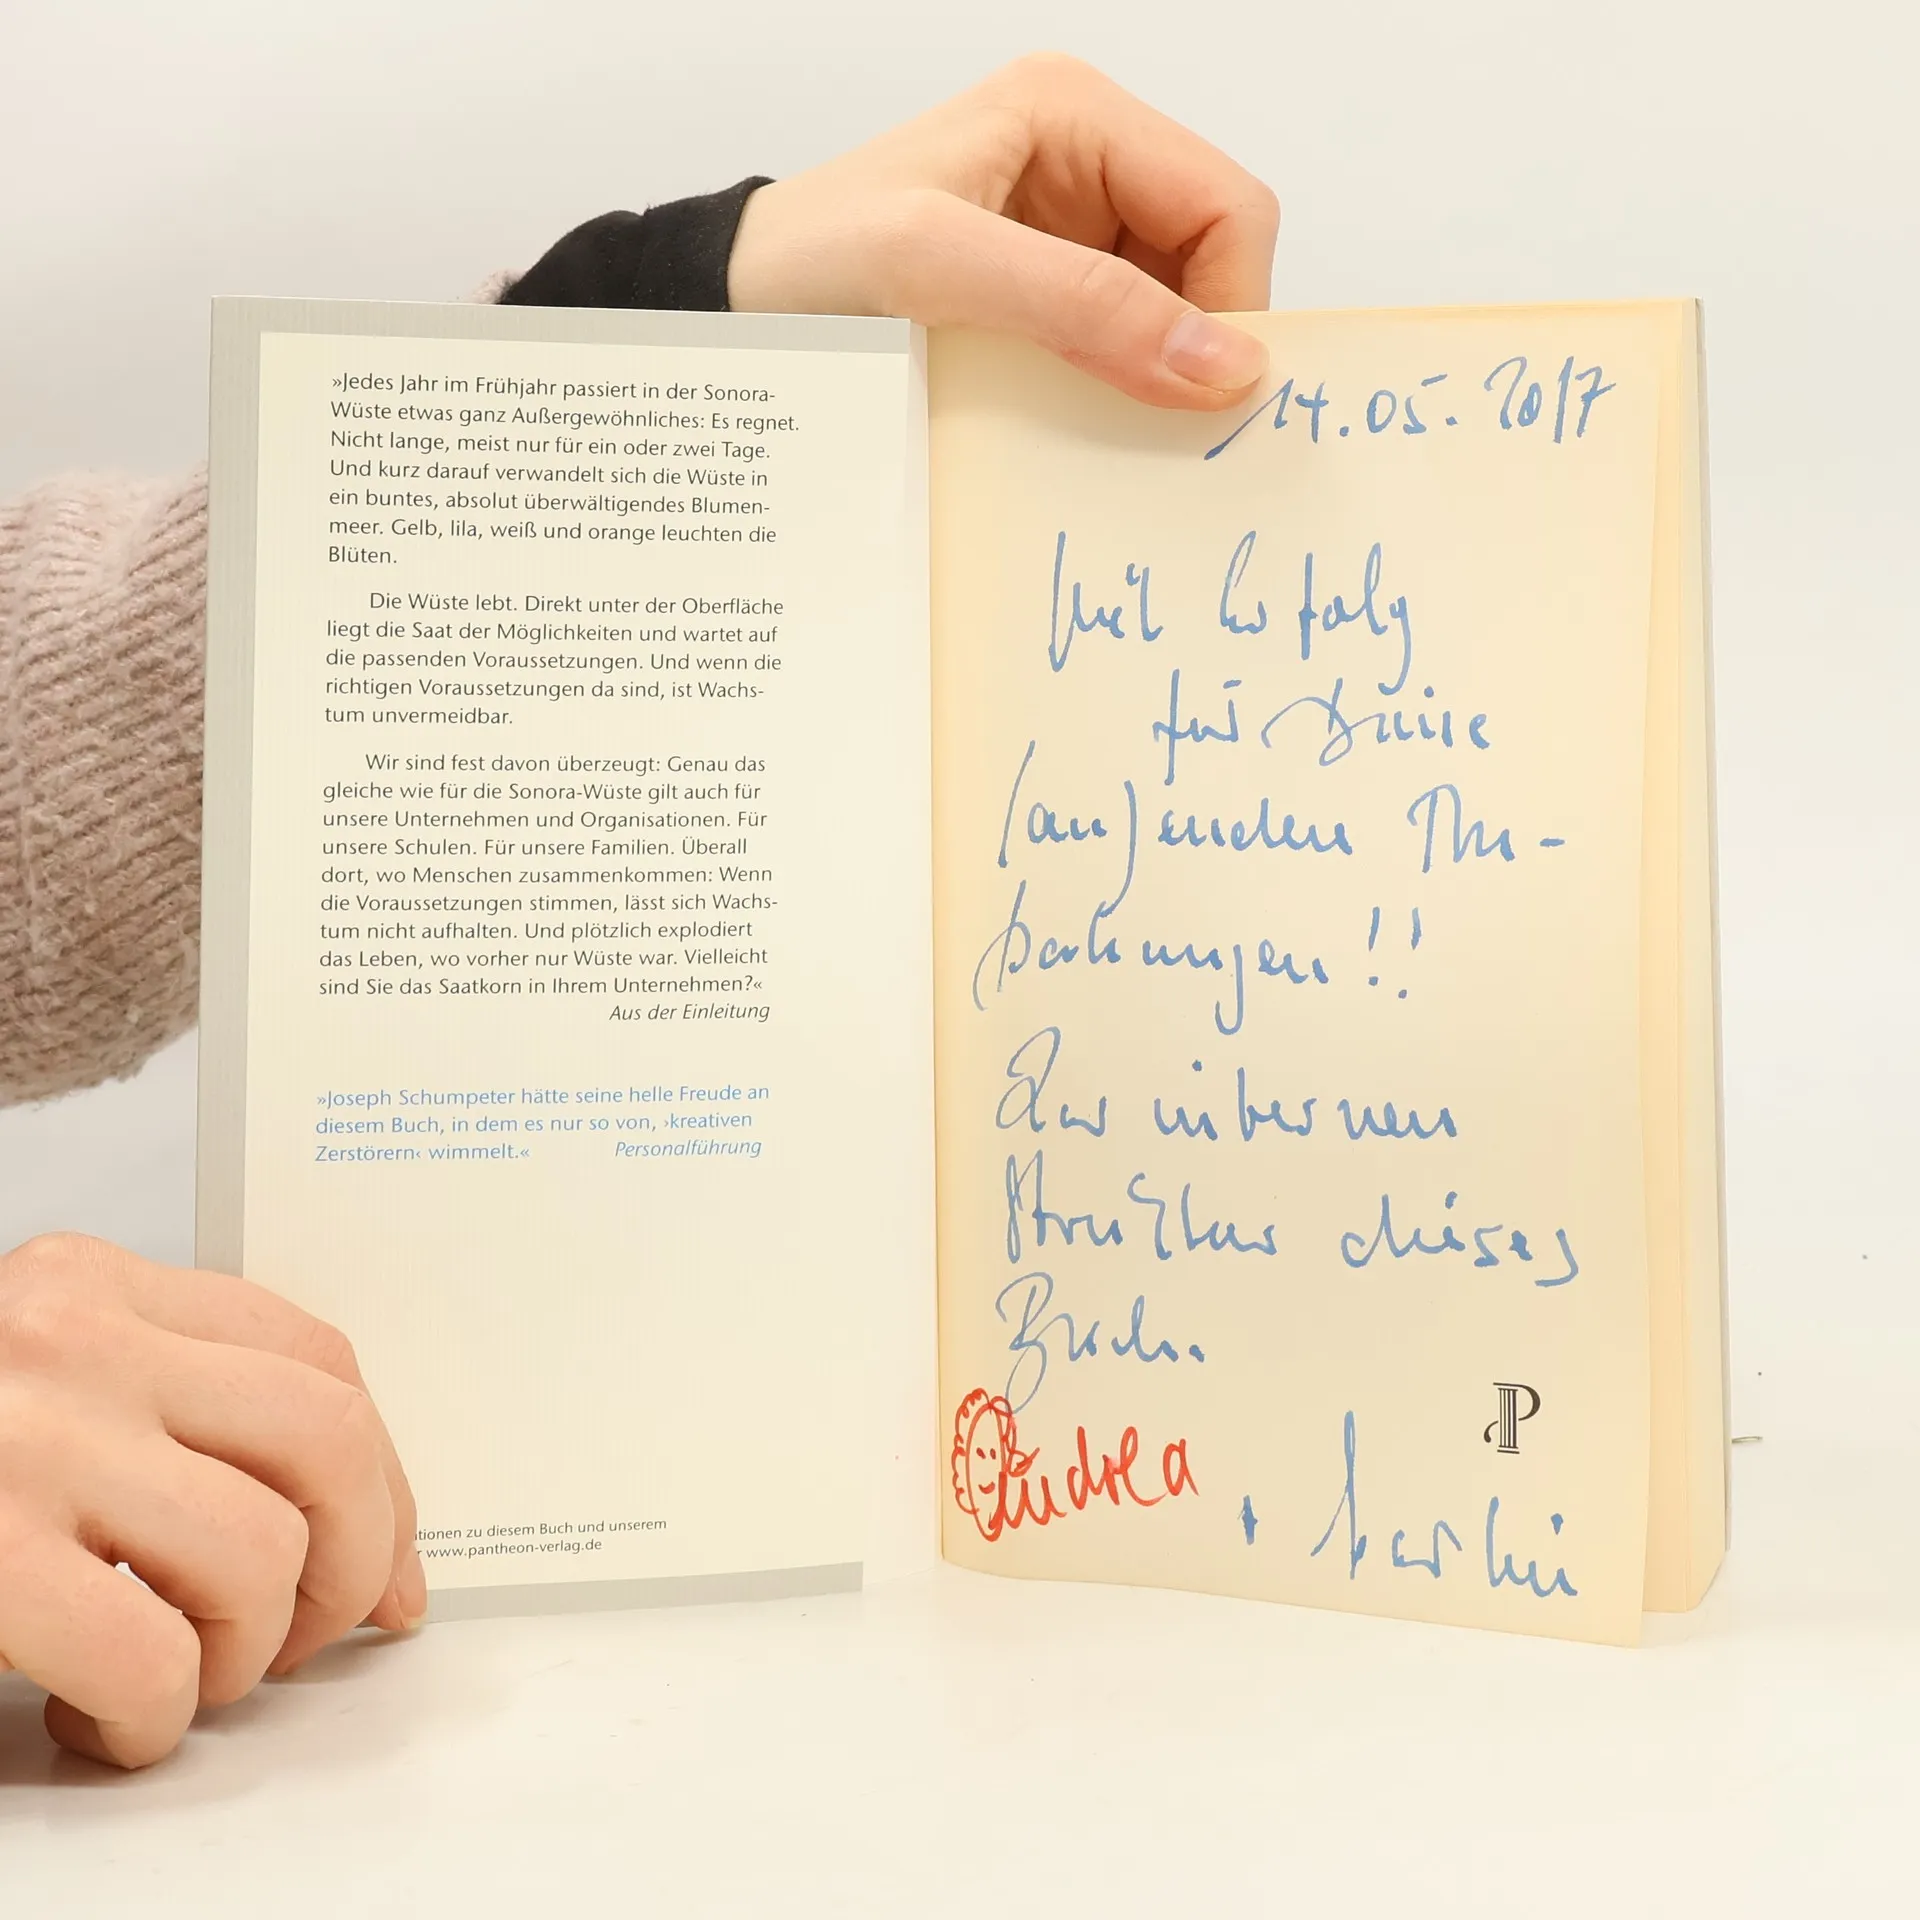 »Jedes Jahr im Frühjahr passiert in der Sonora-
Wüste etwas ganz Außergewöhnliches: Es regnet.
Nicht lange, meist nur für ein oder zwei Tage.
Und kurz darauf verwandelt sich die Wüste in
ein buntes, absolut überwältigendes Blumen-
meer. Gelb, lila, weiß und orange leuchten die
Blüten.
Die Wüste lebt. Direkt unter der Oberfläche
liegt die Saat der Möglichkeiten und wartet auf
die passenden Voraussetzungen. Und wenn die
richtigen Voraussetzungen da sind, ist Wachs-
tum unvermeidbar.
Wir sind fest davon überzeugt: Genau das
gleiche wie für die Sonora-Wüste gilt auch für
unsere Unternehmen und Organisationen. Für
unsere Schulen. Für unsere Familien. Überall
dort, wo Menschen zusammenkommen: Wenn
die Voraussetzungen stimmen, lässt sich Wachs-
tum nicht aufhalten. Und plötzlich explodiert
das Leben, wo vorher nur Wüste war. Vielleicht
sind Sie das Saatkorn in Ihrem Unternehmen?«
Aus der Einleitung
»Joseph Schumpeter hätte seine helle Freude an
diesem Buch, in dem es nur so von, ›kreativen
Zerstörern‹ wimmelt.« Personalführung
tionen zu diesem Buch und unserem
r www.pantheon-verlag.de
14.05.2017
Erfolg
für Deine
!!
Zur internen
Struktur dieses
Buch.
Andrea
P
+